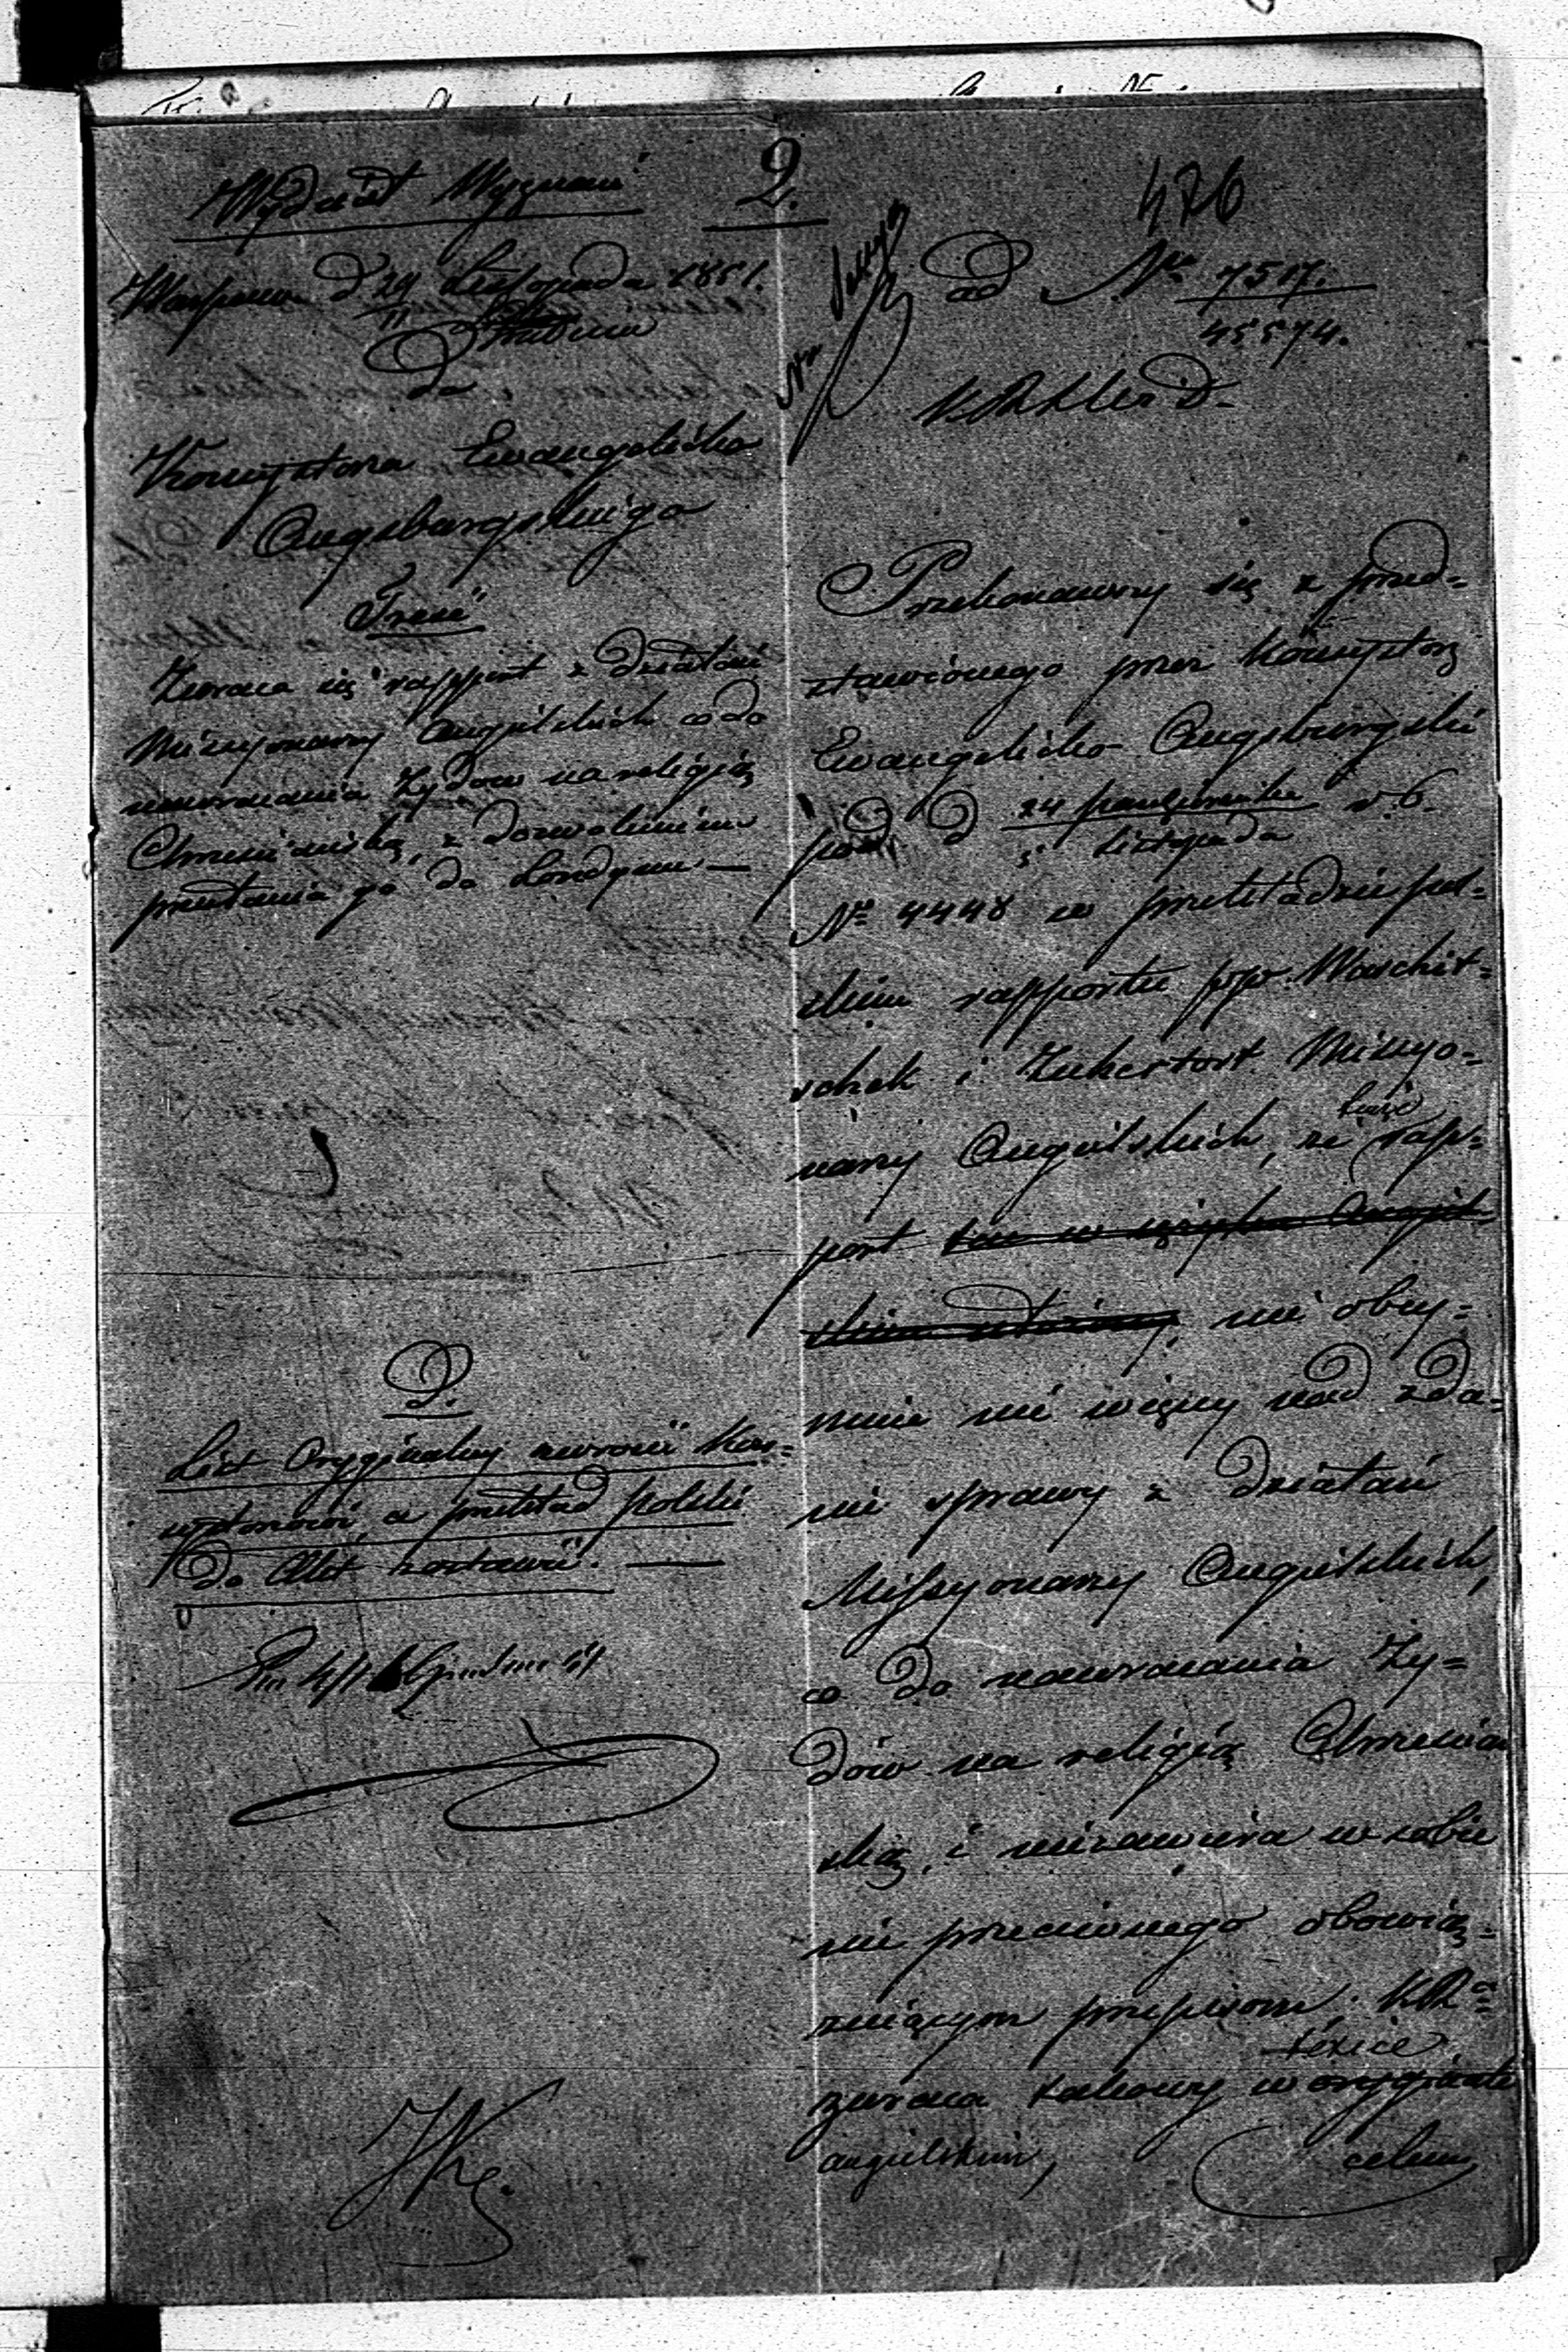 Wydział Wyznań
2.
476
Warszawa d 29 Listopada 1851.
11 Grudnia
ad Nr 7517.
45574.
do
Konsystorza Ewangelicko
Augsburgskiego
Treść
Zwraca się rapport z działań
Missyonarzy Angielskich co do
nawracania Żydów na religią
Chrześciańską, z dozwoleniem
przesłania go do Londynu —
D.
List Oryginalny zwrócić Kon=
systorzowi, a przekład polski
do Akt zostawić. —
Przekonawszy się z przed=
stawionego przez Konsystorz
Ewangelicko Augsburgski
pod d 24 października r. b.
5 Listopada
Nr 4448 w przekładzie pol=
skim rapportu pp. Waschit=
schek i Zukertort Missyo=
narzy Angielskich, że rap=
port ten w języku Angiel=
skim nie obey=
muie nic więcey nad zda=
nie sprawy z działań
Missyonarzy Angielskich,
co do nawracania Ży=
dów na religią Chrześciań
ską, i niezawiera w sobie
nic przeciwnego obowią=
zuiącym przepisom. KR
zwraca takowy w oryginale
texcie
angielskim, celem